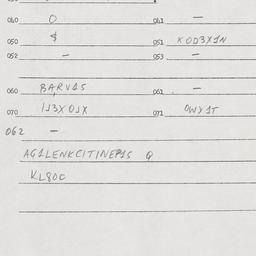 040 O 041 —
050 $ 051 KOD3X1N
052 — 053 —
060 BARVAS 061 —
070 1J3XOJX 071 OWY1T
062 —
AG1LENKCITINEPAS Q
KL80C